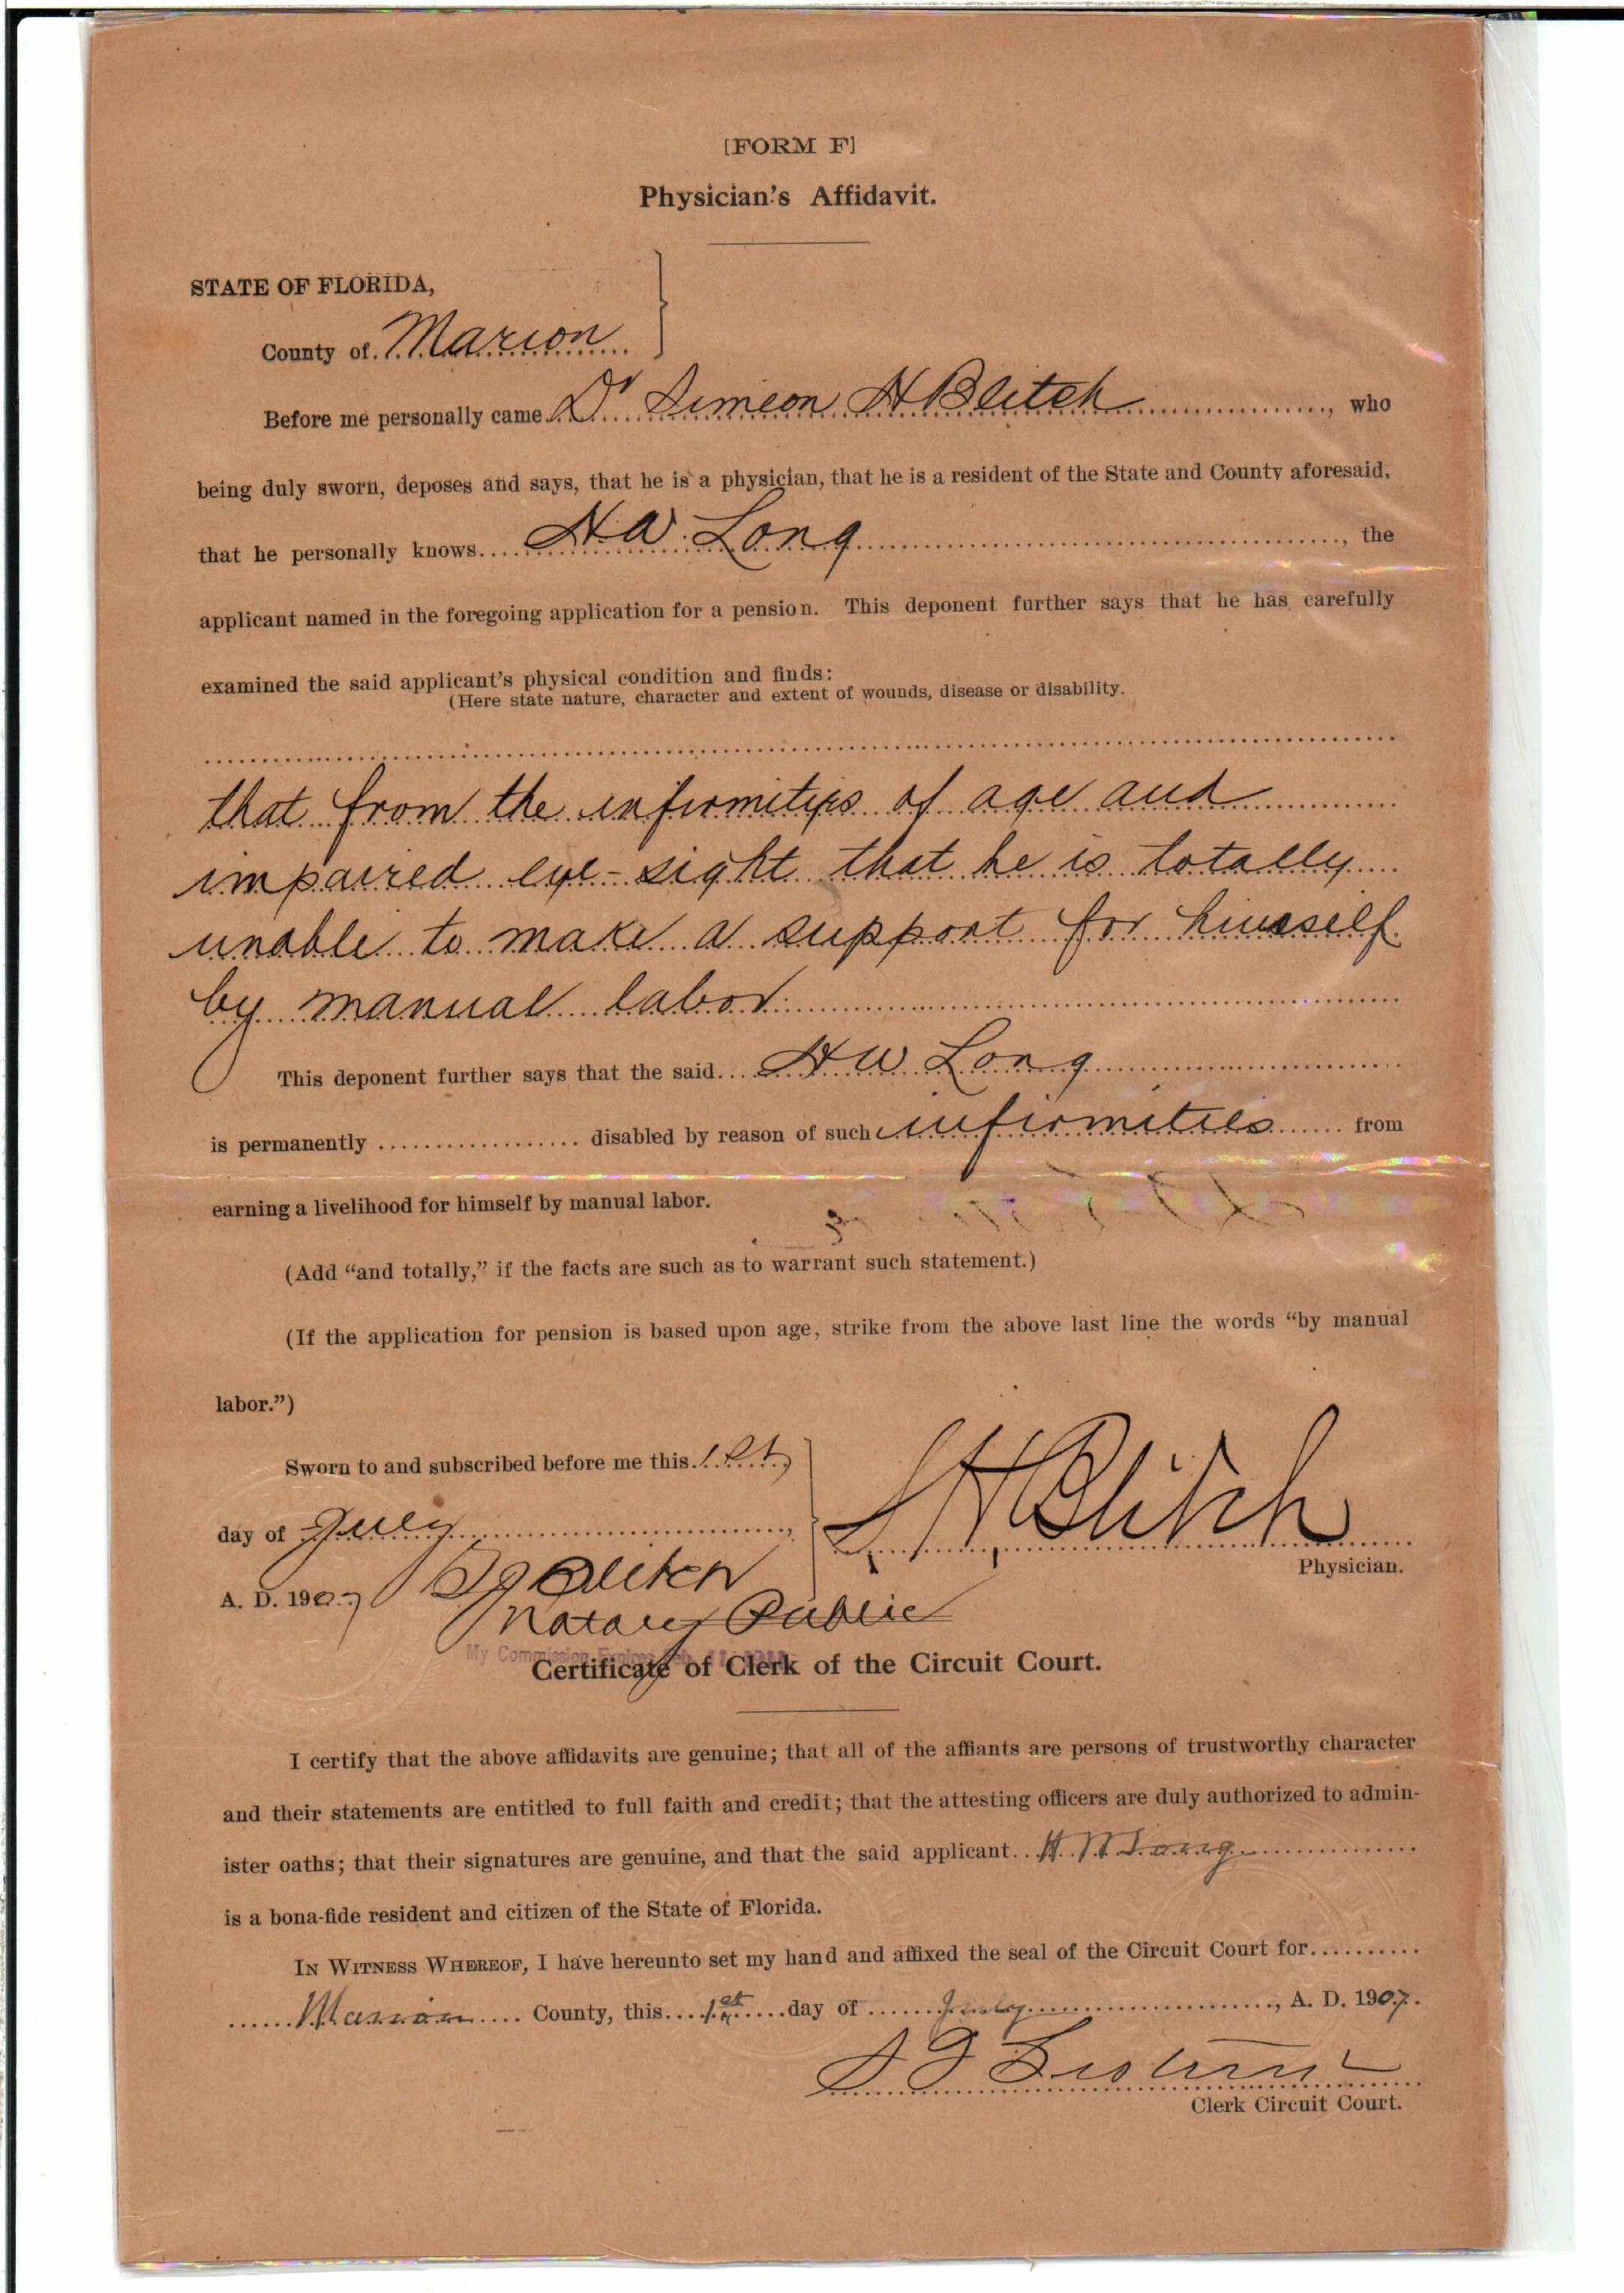 [FORM F]
Physician's Affidavit.
STATE OF FLORIDA,
County of Marion
Before me personally came Dr Simeon H Blitch, who
being duly sworn, deposes and says, that he is a physician, that he is a resident of the State and County aforesaid,
that he personally knows H W Long, the
applicant named in the foregoing application for a pension. This deponent further says that he has carefully
examined the said applicant's physical condition and finds:
(Here state nature, character and extent of wounds, disease or disability.
that from the infirmities of age and
impaired eye-sight that he is totally
unable to make a support for himself
by manual labor.
This deponent further says that the said H W Long
is permanently disabled by reason of such infirmities from
earning a livelihood for himself by manual labor.
(Add "and totally," if the facts are such as to warrant such statement.)
(If the application for pension is based upon age, strike from the above last line the words "by manual
labor.")
Sworn to and subscribed before me this 1st
day of July,
S H Blitch
Physician.
A. D. 1907
Blitch
Notary Public
My Commission Expires Feb.
Certificate of Clerk of the Circuit Court.
I certify that the above affidavits are genuine; that all of the affiants are persons of trustworthy character
and their statements are entitled to full faith and credit; that the attesting officers are duly authorized to admin-
ister oaths; that their signatures are genuine, and that the said applicant H W Long
is a bona-fide resident and citizen of the State of Florida.
IN WITNESS WHEREOF, I have hereunto set my hand and affixed the seal of the Circuit Court for
Marion County, this 1st day of July, A. D. 1907.
Clerk Circuit Court.